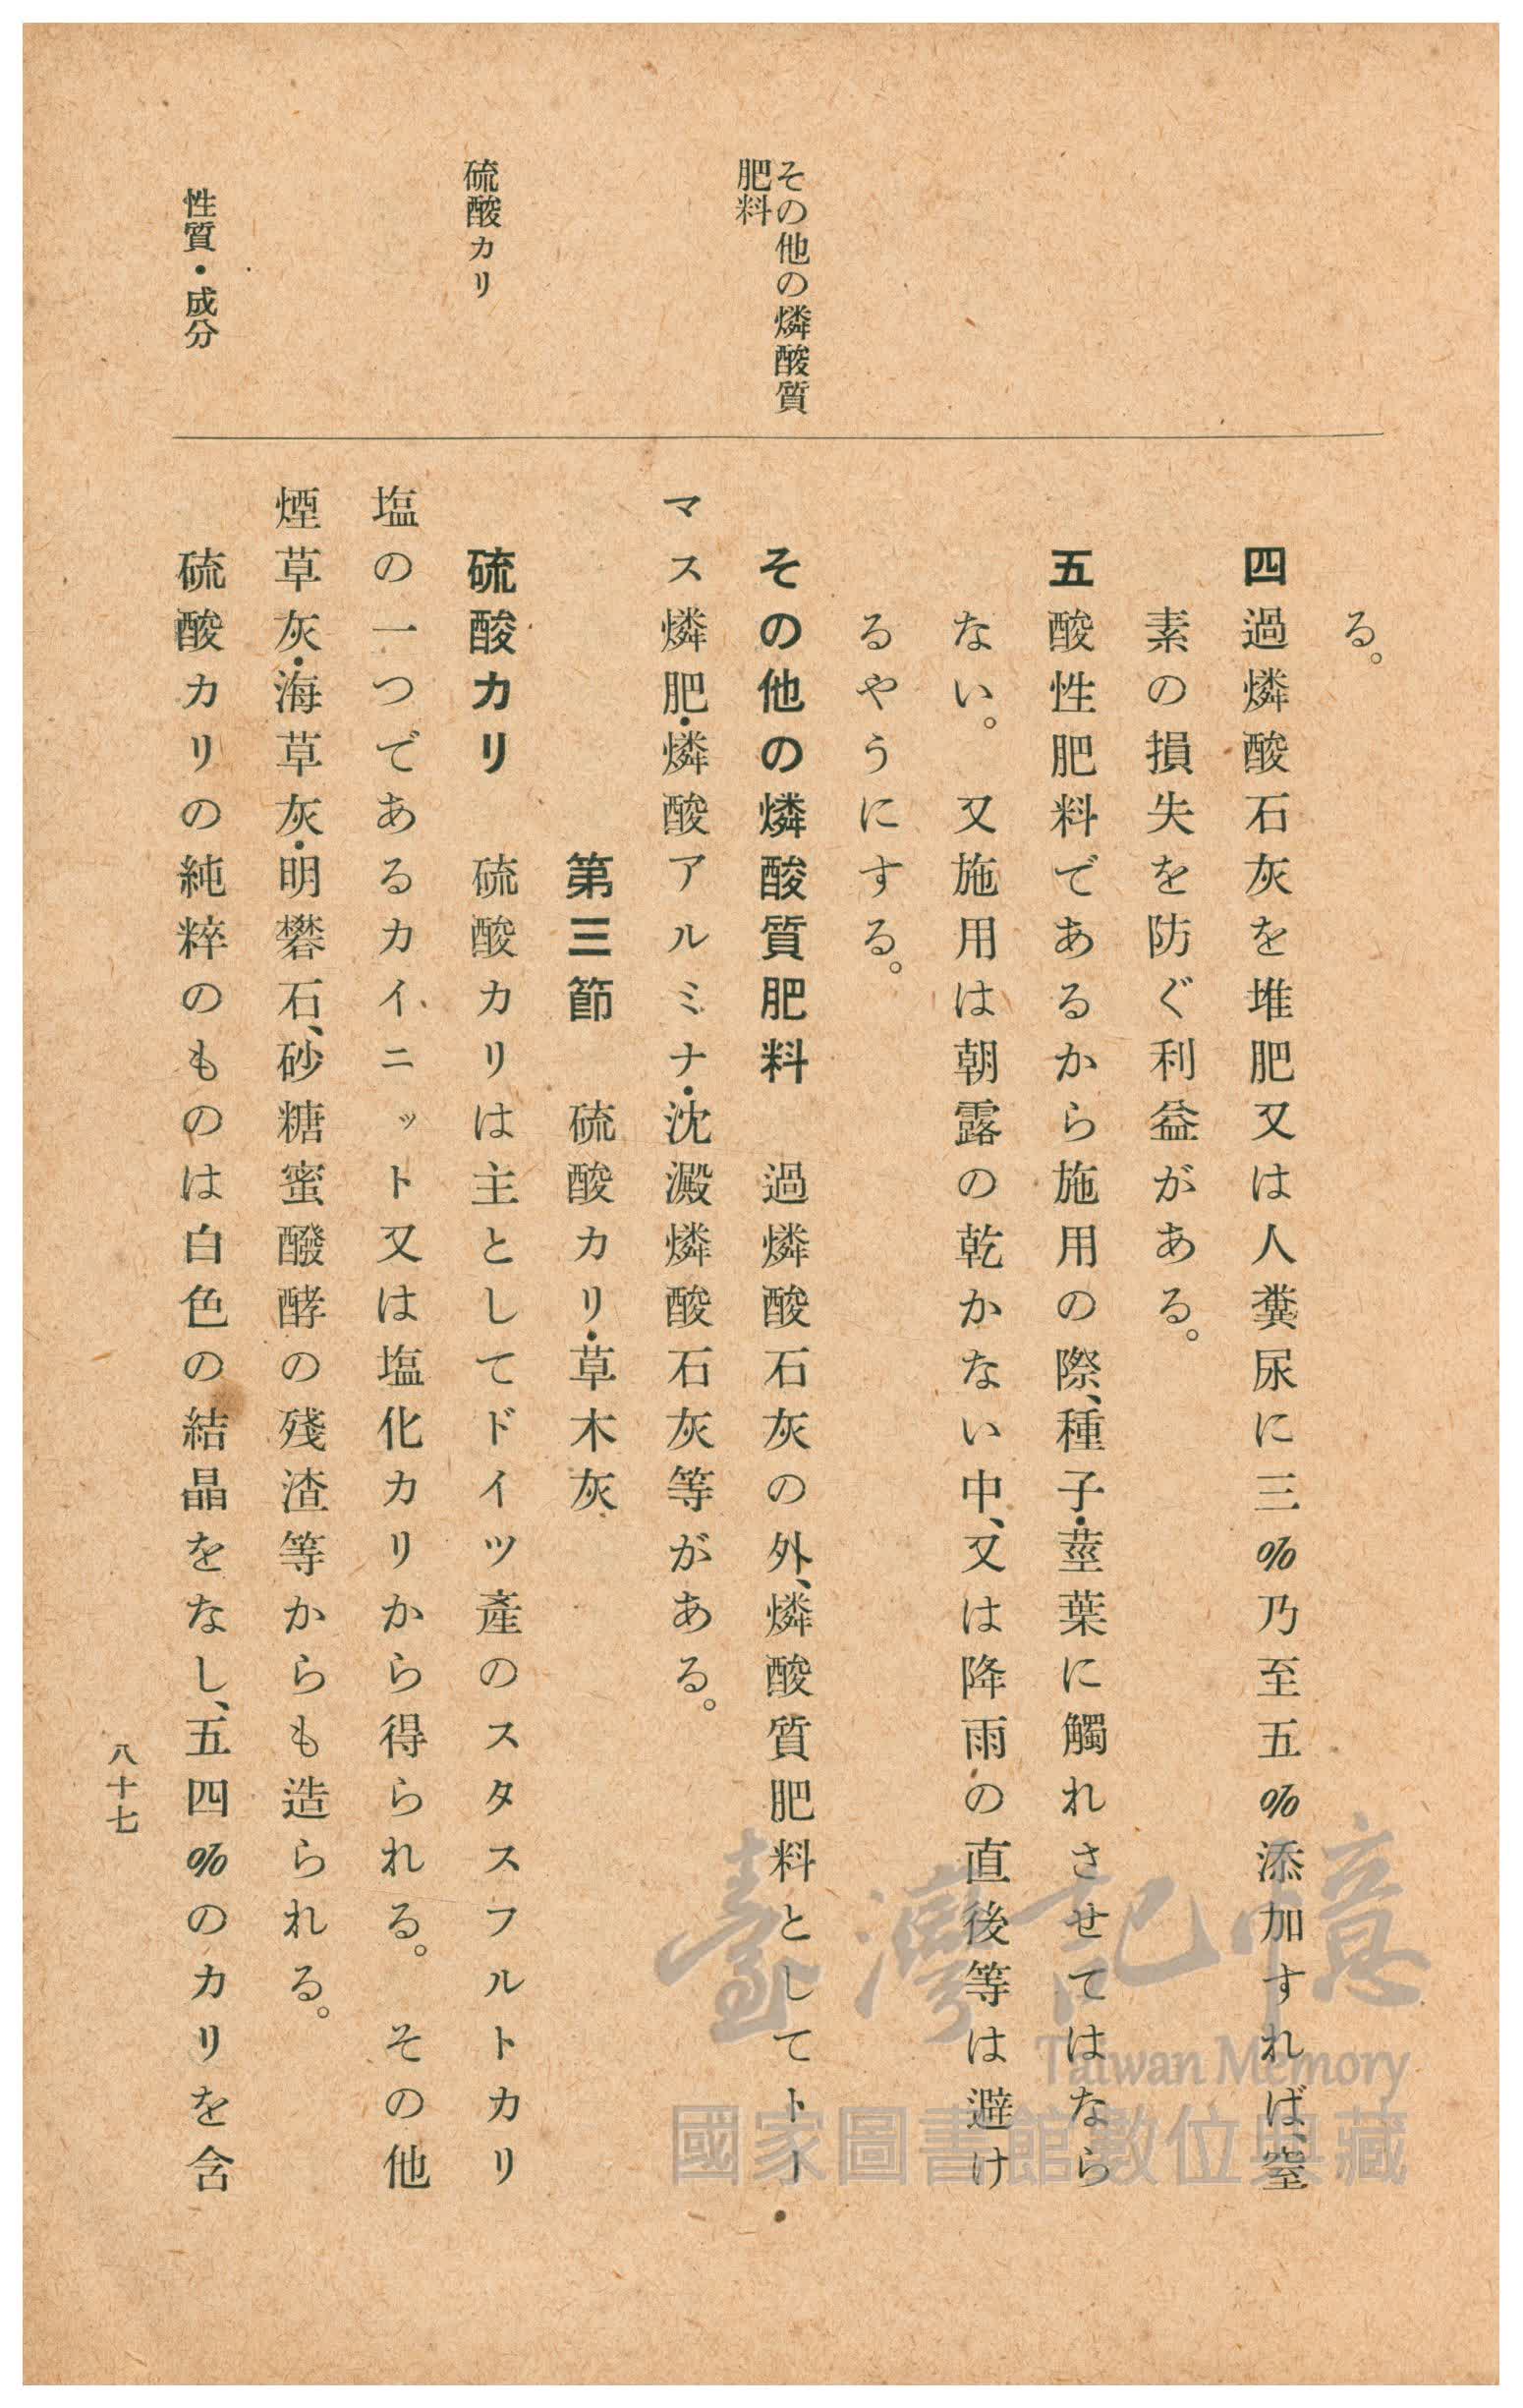 その他の燐酸質
肥料
硫酸カリ
性質・成分
る。
四 過燐酸石灰を堆肥又は人糞尿に三%乃至五%添加すれば、窒
素の損失を防ぐ利益がある。
五 酸性肥料であるから施用の際、種子・莖葉に觸れさせてはなら
ない。又施用は朝露の乾かない中、又は降雨の直後等は避け
るやうにする。
その他の燐酸質肥料 過燐酸石灰の外、燐酸質肥料としてトー・
マス燐肥・燐酸アルミナ・沈澱燐酸石灰等がある。
第三節 硫酸カリ・草木灰
硫酸カリ 硫酸カリは主としてドイツ產のスタスフルトカリ
塩の一つであるカイニット又は塩化カリから得られる。その他
煙草灰・海草灰・明礬石、砂糖蜜醱酵の殘渣等からも造られる。
硫酸カリの純粹のものは白色の結晶をなし、五四%のカリを含
八十七
臺灣記憶
Taiwan Memory
國家圖書館數位典藏